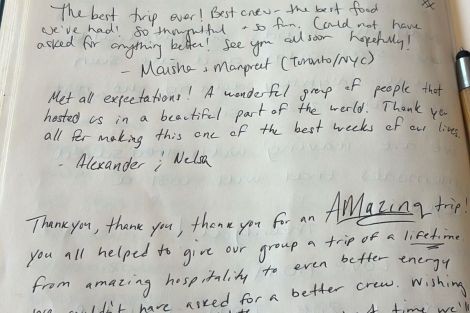 The best trip ever! Best crew - the best food
we've had! So thoughtful + so fun. Could not have
asked for anything better! See you all soon hopefully!
- Maisha & Manpreet (Toronto/NYC)
Met all expectations! A wonderful group of people that
hosted us in a beautiful part of the world. Thank you
all for making this one of the best weeks of our lives.
- Alexander i Nelsa
Thank you, thank you, thank you for an AMazing trip!
you all helped to give our group a trip of a lifetime
from amazing hospitality to even better energy
have asked for a better crew. Wishing
A time we'll